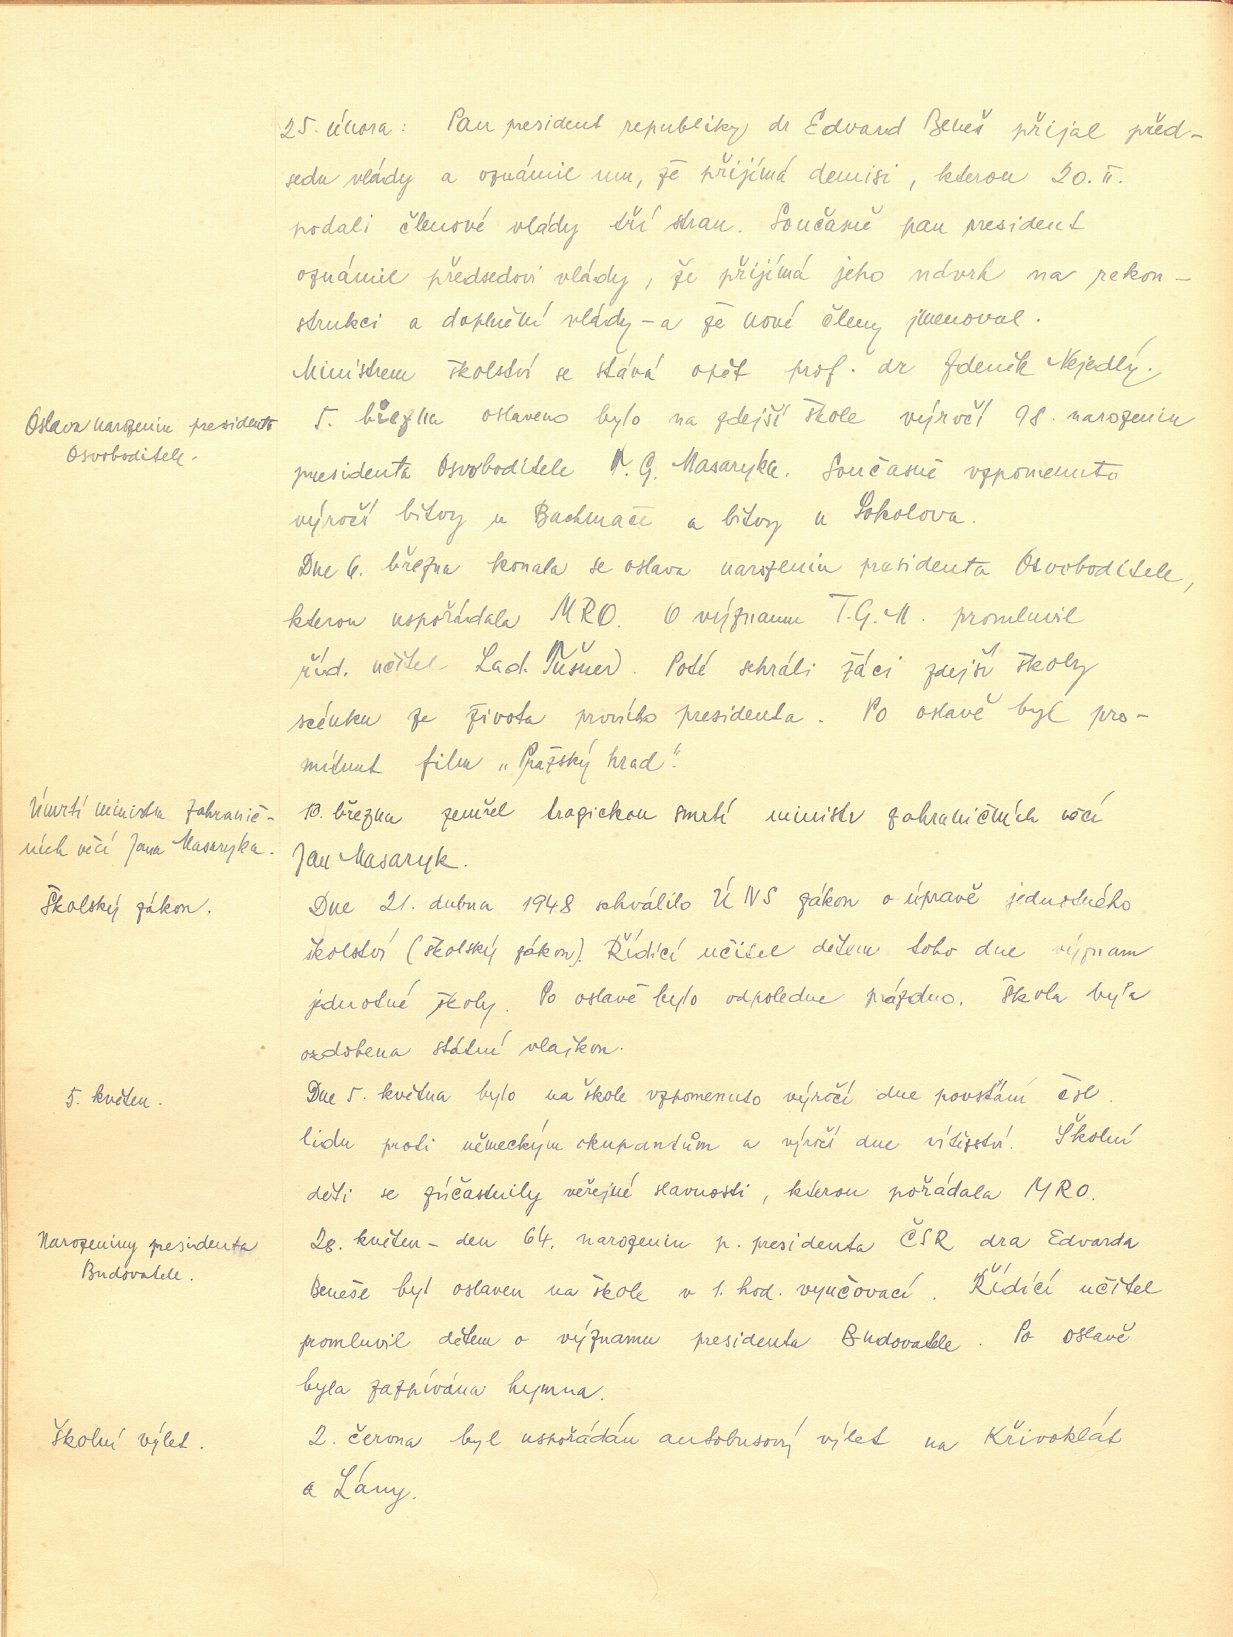 25. února: Pan president republiky dr Edvard Beneš přijal před-
sedu vlády a oznámil mu, že přijímá demisi, kterou 20. II.
podali členové vlády tří stran. Současně pan president
oznámil předsedovi vlády, že přijímá jeho návrh na rekon-
strukci a doplnění vlády - a že nové členy jmenoval.
Ministrem školství se stává opět prof. dr Zdeněk Nejedlý.
Oslava narozenin presidenta
Osvoboditele.
5. března oslaveno bylo na zdejší škole výročí 98. narozenin
presidenta Osvoboditele T. G. Masaryka. Současně vzpomenuto
výročí bitvy u Bachmače a bitvy u Sokolova.
Dne 6. března konala se oslava narozenin presidenta Osvoboditele,
kterou uspořádala MRO. O významu T.G.M. promluvil
říd. učitel Lad. Poté sehráli žáci zdejší školy
scénku ze života prvního presidenta. Po oslavě byl pro-
mítnut film „Pražský hrad".
Úmrtí ministra zahranič-
ních věcí Jana Masaryka.
10. března zemřel tragickou smrtí ministr zahraničních věcí
Jan Masaryk.
Školský zákon.
Dne 21. dubna 1948 schválilo ÚNS zákon o úpravě jednotného
školství (školský zákon). Řídící učitel dětem toho dne význam
jednotné školy. Po oslavě bylo odpoledne prázdno. Škola byla
ozdobena státní vlajkou.
5. květen.
Dne 5. května bylo na škole vzpomenuto výročí dne povstání čsl.
lidu proti německým okupantům a výročí dne vítězství. Školní
děti se zúčastnily veřejné slavnosti, kterou pořádala MRO.
Narozeniny presidenta
Budovatele.
28. květen - den 64. narozenin p. presidenta ČSR dra Edvarda
Beneše byl oslaven na škole v 1. hod. vyučovací. Řídící učitel
promluvil dětem o významu presidenta Budovatele. Po oslavě
byla zazpívána hymna.
Školní výlet.
2. června byl uspořádán autobusový výlet na Křivoklát
a Lány.